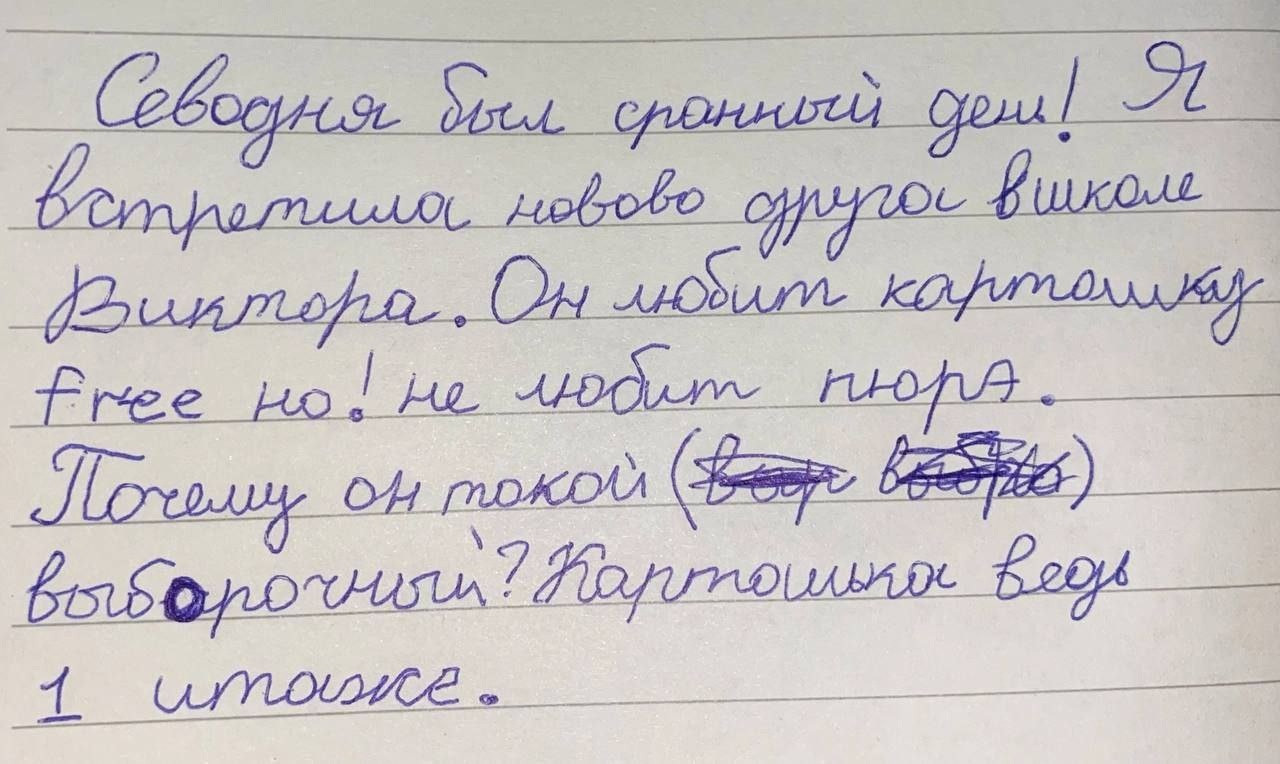 Севодня был сранный день! Я
встретила новово друга вшколе
Виктора. Он любит картошку
free но! не любит пюрэ.
Почему он токой (
)
выборочный? Картошька ведь
1 итаже.